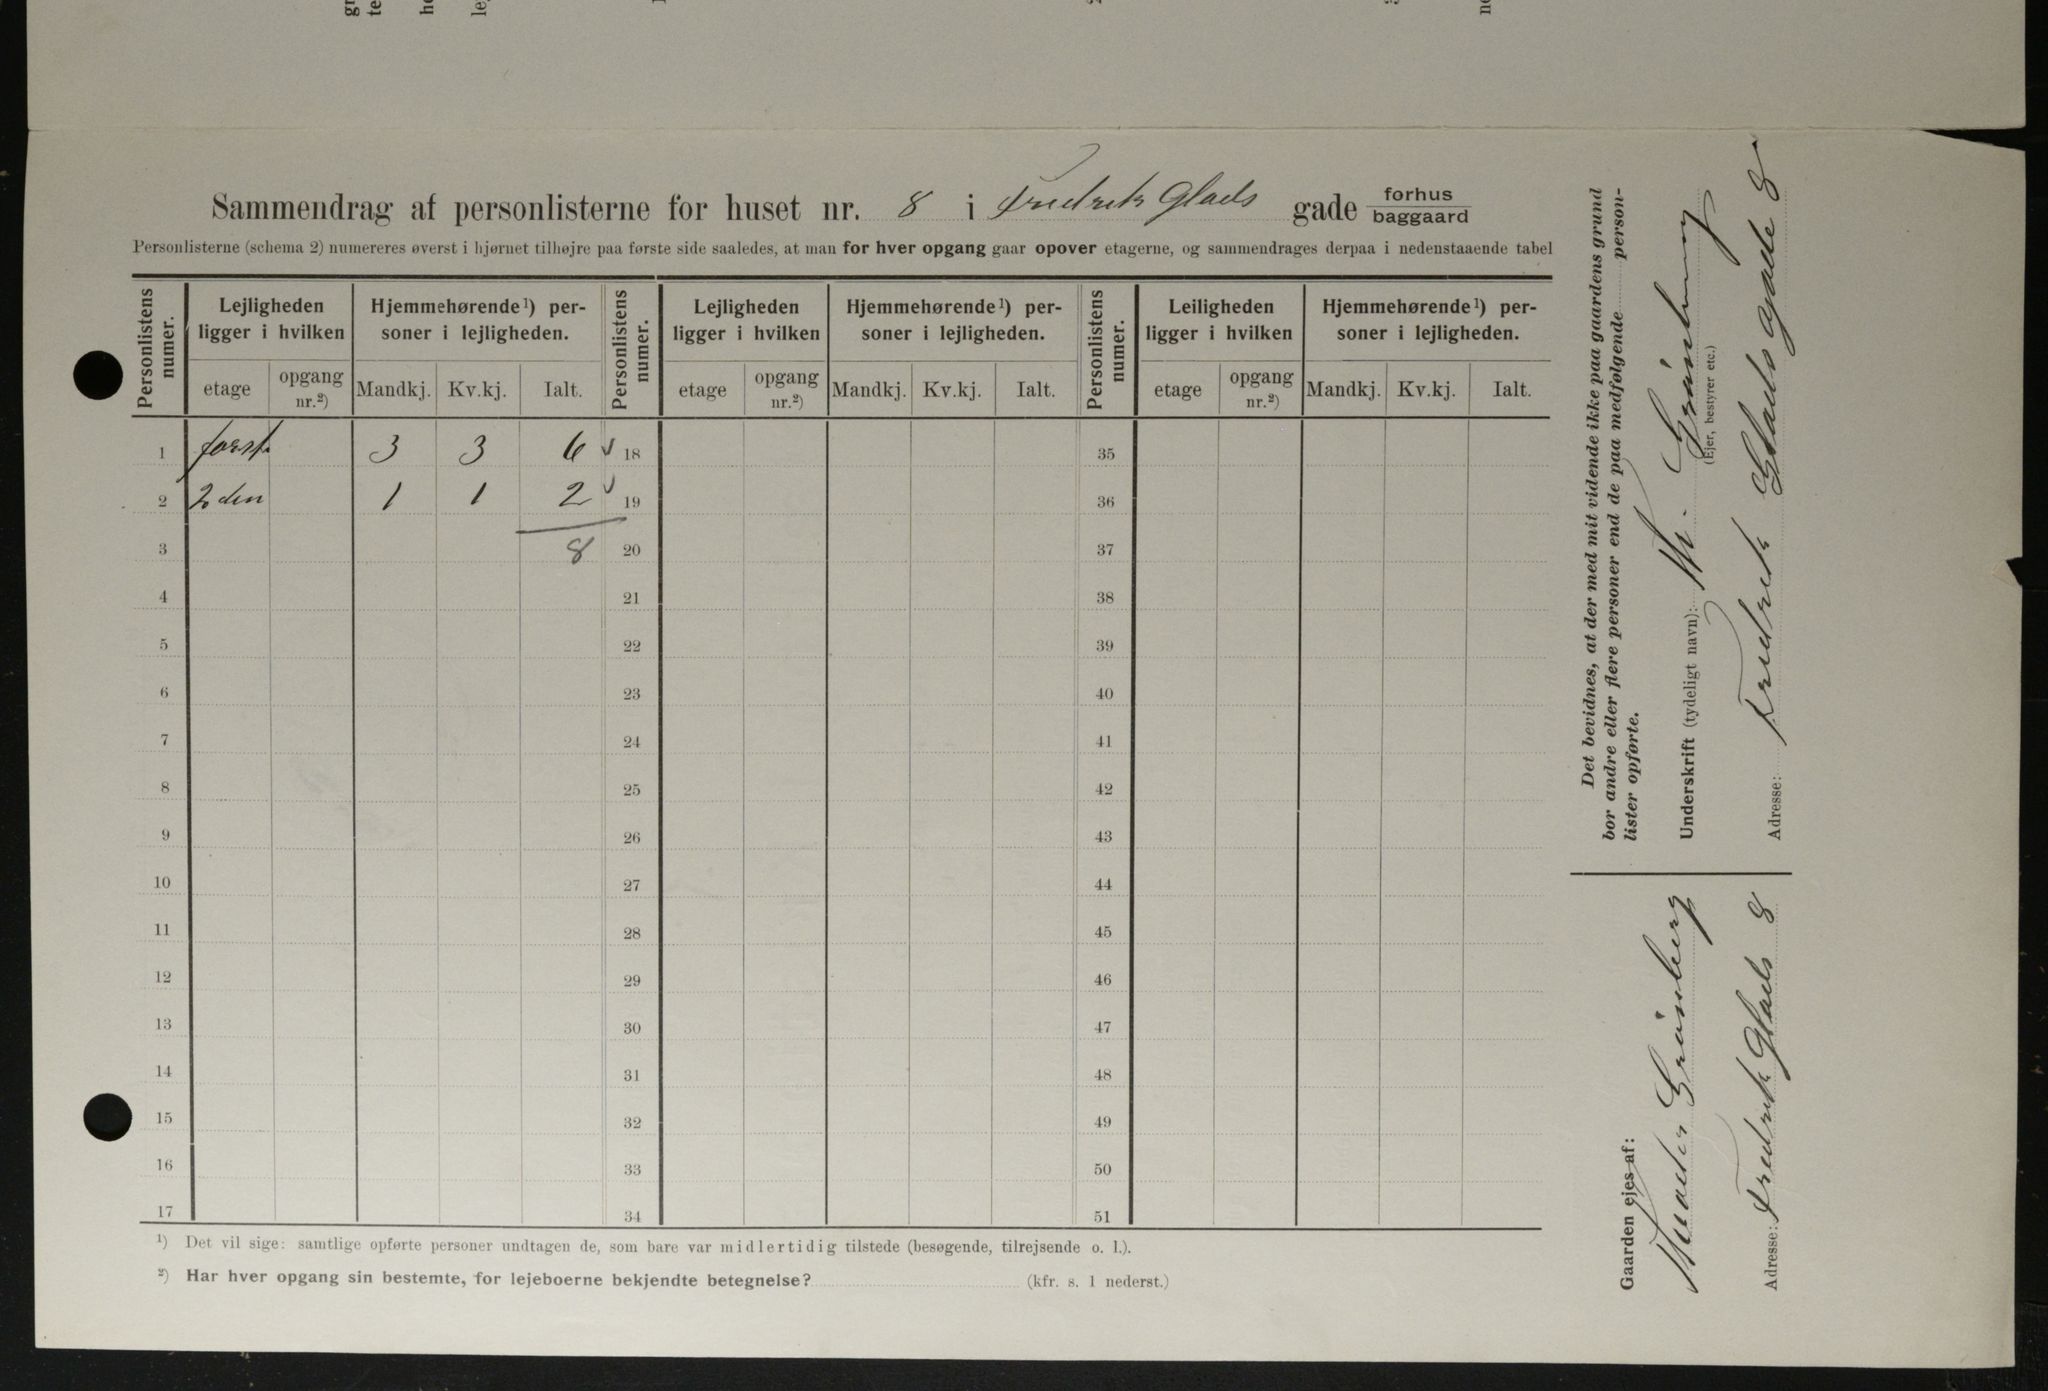 Sammendrag af personlisterne for huset nr. 8 i Fredrik Glads gade forhus baggaard
Personlisterne (schema 2) numereres øverst i hjørnet tilhøjre paa første side saaledes, at man for hver opgang gaar opover etagerne, og sammendrages derpaa i nedenstaaende tabel
Personlistens numer. Lejligheden ligger i hvilken Hjemmehørende¹) personer i lejligheden. Personlistens numer. Lejligheden ligger i hvilken Hjemmehørende¹) personer i lejligheden. Personlistens numer. Leiligheden ligger i hvilken Hjemmehørende¹) personer i lejligheden.
etage opgang nr.²) Mandkj. Kv.kj. Ialt. etage opgang nr.²) Mandkj. Kv.kj. Ialt. etage opgang nr.²) Mandkj. Kv.kj. Ialt.
1 første 3 3 6 18 35
2 2den 1 1 2 19 36
3 8 20 37
4 21 38
5 22 39
6 23 40
7 24 41
8 25 42
9 26 43
10 27 44
11 28 45
12 29 46
13 30 47
14 31 48
15 32 49
16 33 50
17 34 51
¹) Det vil sige: samtlige opførte personer undtagen de, som bare var midlertidig tilstede (besøgende, tilrejsende o. l.).
²) Har hver opgang sin bestemte, for lejeboerne bekjendte betegnelse? (kfr. s. 1 nederst.)
Det bevidnes, at der med mit vidende ikke paa gaardens grund
bor andre eller flere personer end de paa medfølgende person-
lister opførte.
Underskrift (tydeligt navn): Grönberg
(Ejer, bestyrer etc.)
Adresse: Fredrik Gladsgade 8
Gaarden ejes af:
Grönberg
Adresse: Fredrik Glads 8